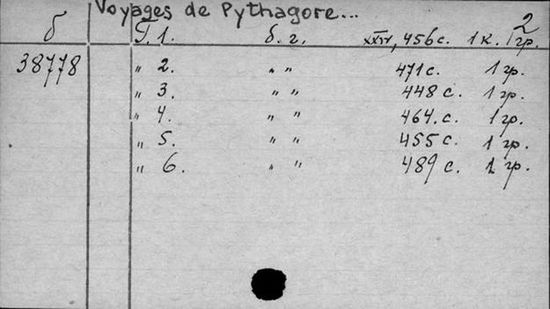 Voyages de Pythagore...
2
б T. 1. б. г. XXIV, 456 с. 1 к. 1 гр.
38778 " 2. " " 471 с. 1 гр.
" 3. " " 448 с. 1 гр.
" 4. " " 464. с. 1 гр.
" 5. " " 455 с. 1 гр.
" 6. " " 489 с. 1 гр.